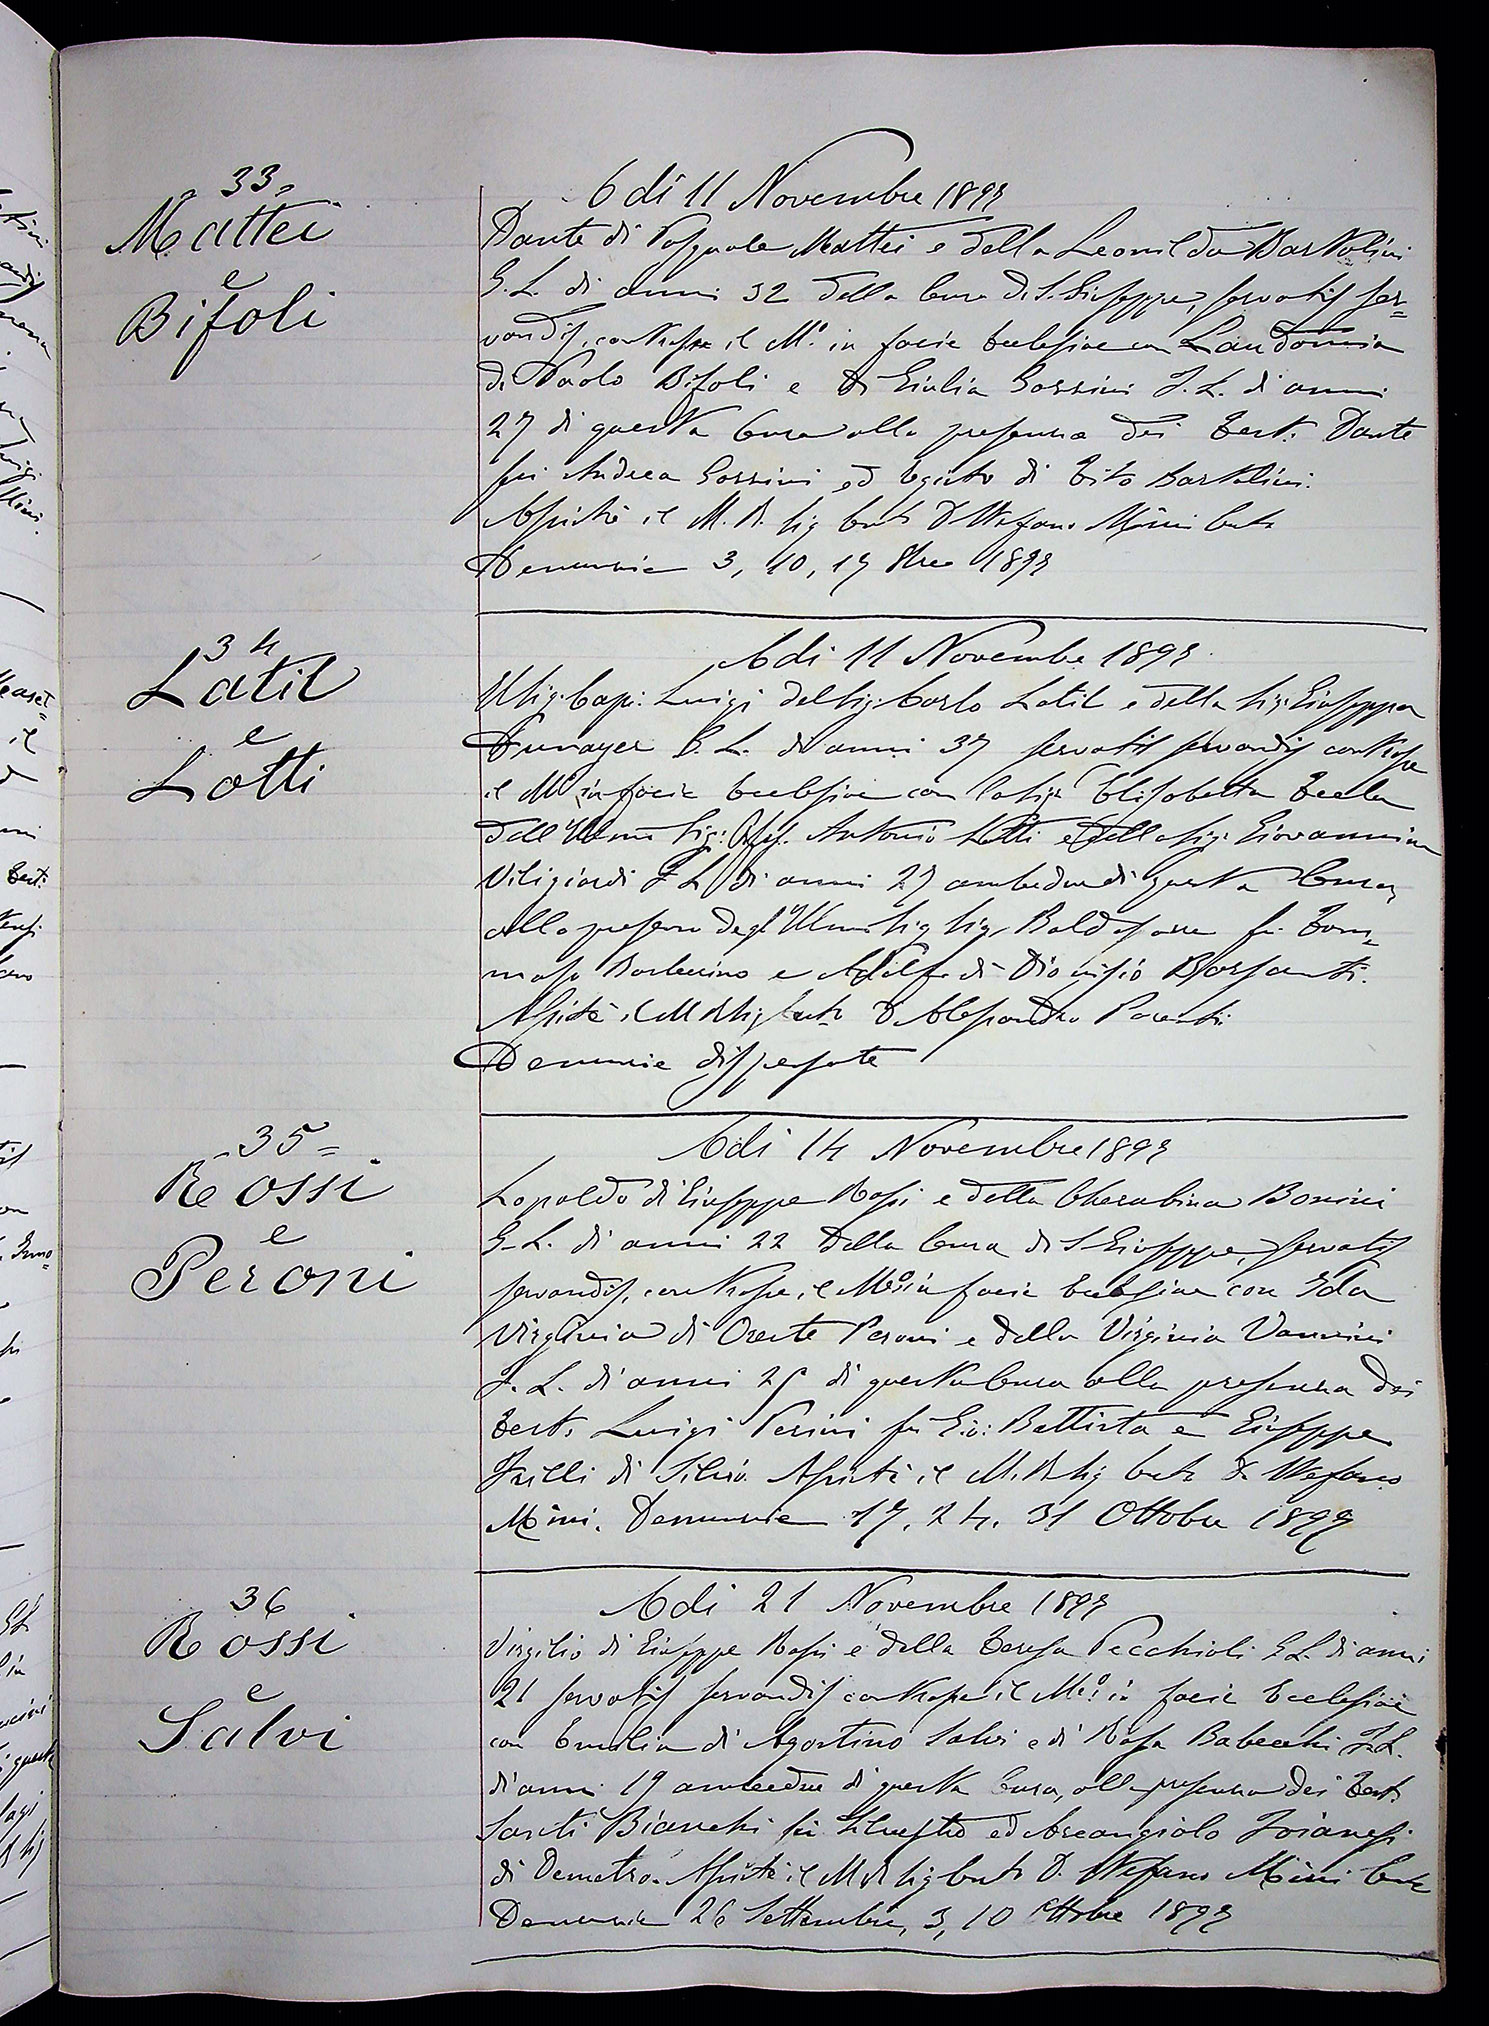 33.
Mattei
e
Bifoli
Adì 11 Novembre 1897
Dante di Pasquale Mattei e della Leonilda Bartolini
G. L. di anni 32 della Cura di S. Giuseppe, servatis ser=
vandis, contrasse il M.o in facie Ecclesiae con Laudomia
di Paolo Bifoli e di Giulia Gossini F. L. di anni
27 di questa Cura alla presenza dei Test: Dante
fu Andrea Gossini ed Egisto di Tito Bartolini.
Assistè il M. R. Sig Curato D Stefano Mini
Denunzie 3, 10, 17 8bre 1897
34
Latil
e
Lotti
Adi 11 Novembe 1897
Il Sig. Cap: Luigi del Sig: Carlo Latil e della Sig: Giuseppa
G. L. di anni 37 servatis servandis contrasse
il M.o in facie Ecclesiae con la Sig.a Elisabetta Tecla
dell' Illmo Sig: Antonio Lotti e della Sig: Giovannina
Viligiardi F L di anni 27 ambedue di questa Cura,
alla presenza degl' Illmi Sig Sig. Baldassarre fu Tom=
maso e Adolfo di Dionisio
Assistè il M R Sig Curato D Alessandro Parenti
Denunzie dispensate
35=
Rossi
e
Peroni
Adi 14 Novembre 1897
Lopoldo di Giuseppe Rossi e della Cherubina Bonini
G. L. di anni 22 della Cura di S. Giuseppe, servatis
servandis, contrasse il M.o in facie Ecclesiae con Ida
Virginia di Oreste Peroni e della Virginia Vannini
F. L. di anni 25 di questa Cura alla presenza dei
Test: Luigi Perini fu Gio: Battista e Giuseppe
Frilli di Silvio. Assistè il M. R. Sig Curato D. Stefano
Mini. Denunzie 17, 24, 31 Ottobre 1897
36
Rossi
e
Salvi
Adi 21 Novembre 1897
Virgilio di Giuseppe Rossi e della Teresa Pecchioli G L. di anni
21 servatis servandis contrasse il M.o in facie Ecclesiae
con Emilia di Agostino Salvi e di Rosa Babecchi F. L.
di anni 19 ambedue di questa Cura, alla presenza dei Test:
Santi Bianchi fu Silvestro ed Arcangiolo
di Demetrio. Assistè il M R Sig Curato D. Stefano Mini
Denunzie 26 Settembre, 3, 10 Ottobre 1897